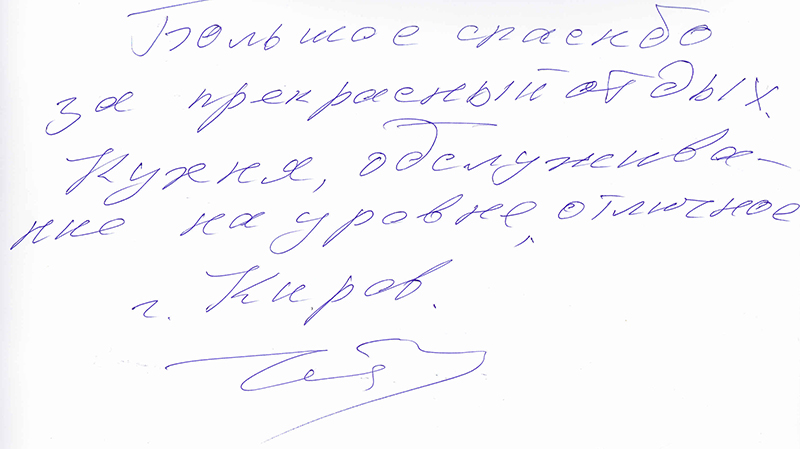 Большое спасибо
за прекрасный отдых.
Кухня, обслужива-
ние на уровне, отличное
г. Киров.